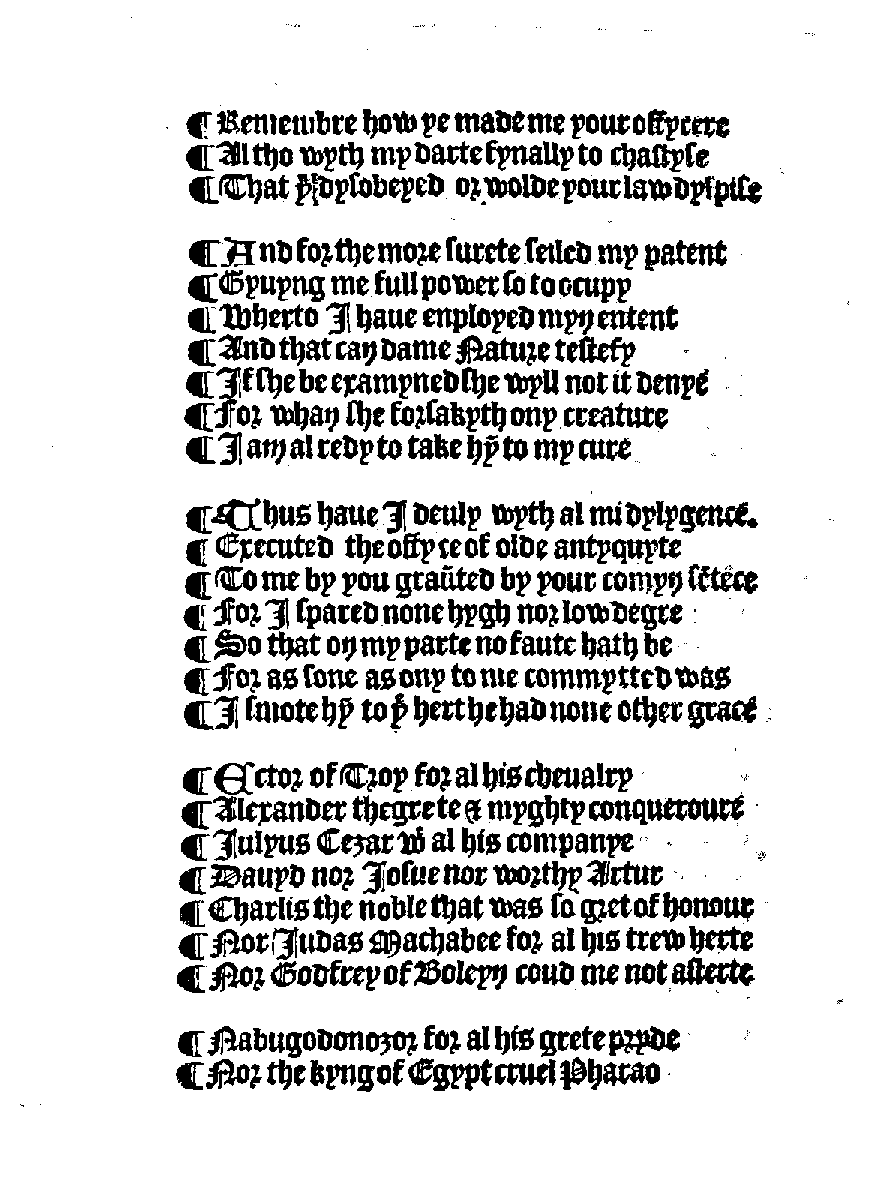 ¶ Remembre how ye made me your offycere
¶ Al tho wyth my darte fynally to chastyse
¶ That yͭ dysobeyed or wolde your law dyspise
¶ And for the more surete seiled my patent
¶ Gyuyng me full power so to occupy
¶ Wherto I haue enployed myn entent
¶ And that can dame Nature testefy
¶ If she be examyned she wyll not it denye
¶ For whan she forsakyth ony creature
¶ I am al redy to take hy̅ to my cure
¶ Thus haue I deuly wyth al mi dylygence.
¶ Executed the offyce of olde antyquyte
¶ To me by you grau̅ted by your comyn se̅te̅ce
¶ For I spared none hygh nor low degre
¶ So that on my parte no faute hath be
¶ For as sone as ony to me commytted was
¶ I smote hy̅ to yͤ hert he had none other grace
¶ Ector of Troy for al his cheualry
¶ Alexander the grete & myghty conqueroure
¶ Julyus Cezar wͭ al his companye
¶ Dauyd nor Josue nor worthy Artur
¶ Charlis the noble that was so gret of honour
¶ Nor Judas Machabee for al his trew herte
¶ Nor Godfrey of Boleyn coud me not asterte
¶ Nabugodonozor for al his grete pryde
¶ Nor the kyng of Egypt cruel Pharao